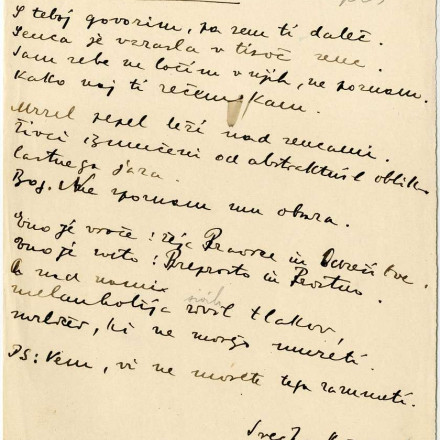 S teboj govorim, pa sem ti daleč.
Senca je vzrasla v tisoč senc.
Sam sebe ne ločim v njih, ne poznam.
Kako naj ti rečem, kam.
Mrzel pepel leži nad sencami.
Živci izmučeni od abstraktnih oblik
lastnega jaza.
Bog. Ne spoznam mu obraza.
Eno je vroče: žeja Pravice in
Eno je sveto: Preprosto in
A nad nami
melanholija sivih tlakov,
mrličev, ki ne morejo umreti.
PS: Vem, vi ne morete tega razumeti.